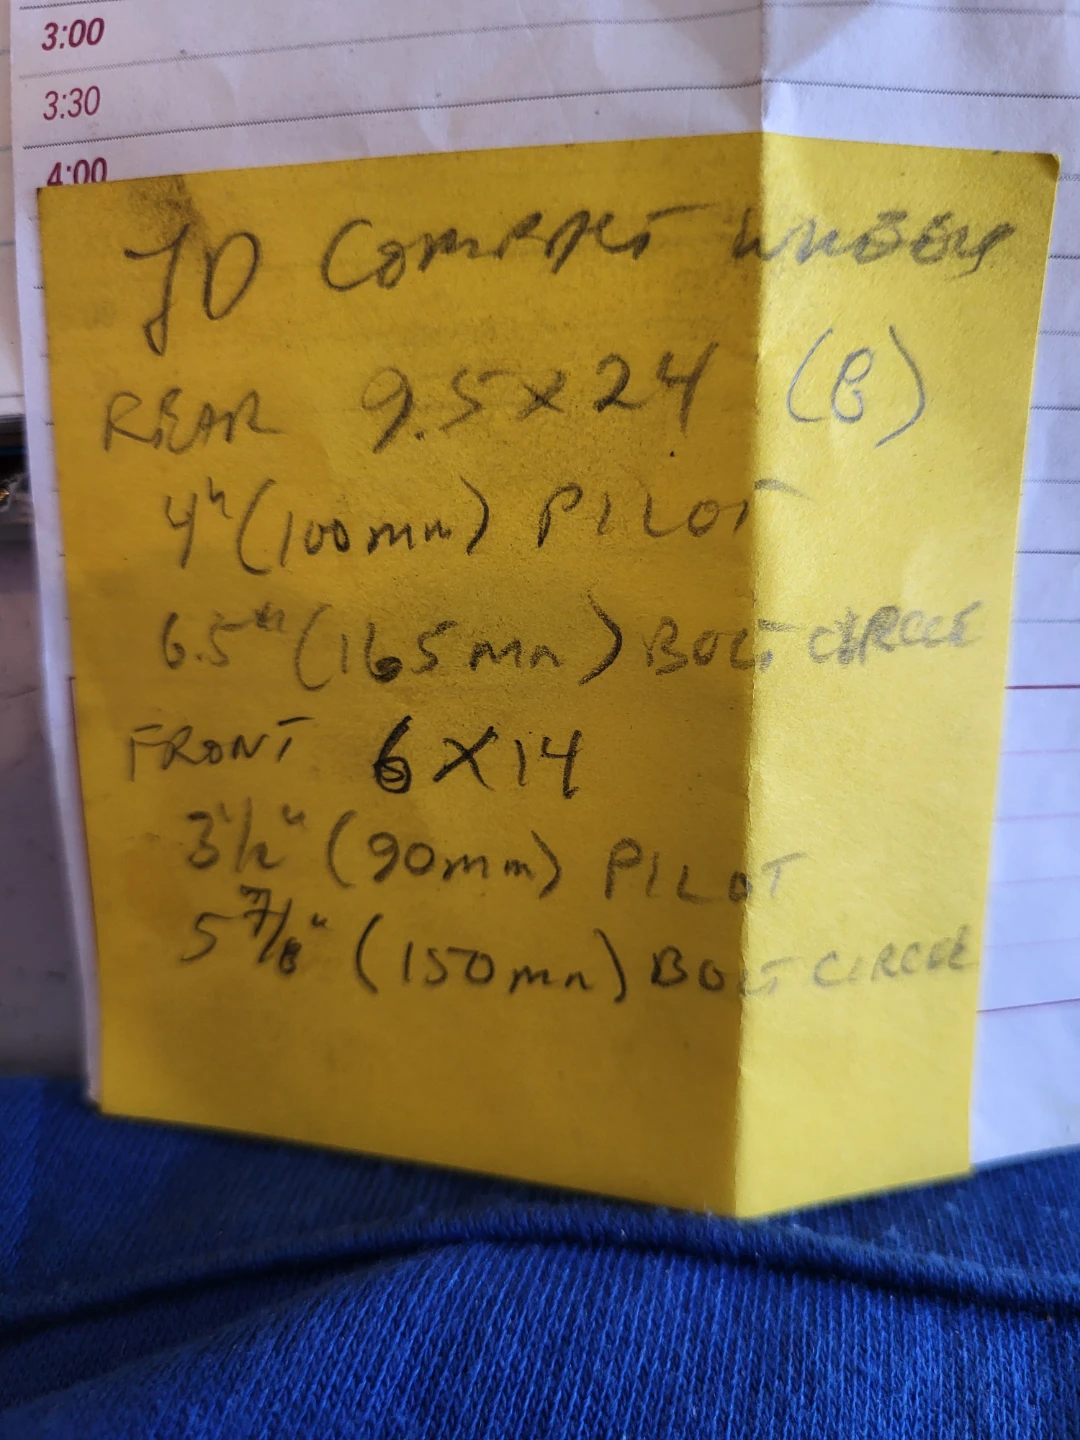 3:00
3:30
4:00
JD COMPACT WHEELS
REAR 9.5 x 24 (B)
4" (100mm) PILOT
6.5" (165mm) BOLT CIRCLE
FRONT 6 X 14
3 1/2" (90mm) PILOT
5 7/8" (150mm) BOLT CIRCLE